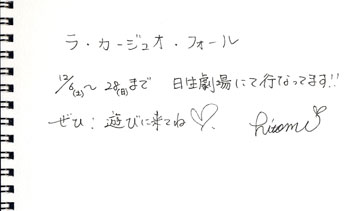 ラ・カージュオ・フォール
12/6(土)～28(日)まで 日生劇場にて行なってます!!
ぜひ! 遊びに来てね♡.
hitomi